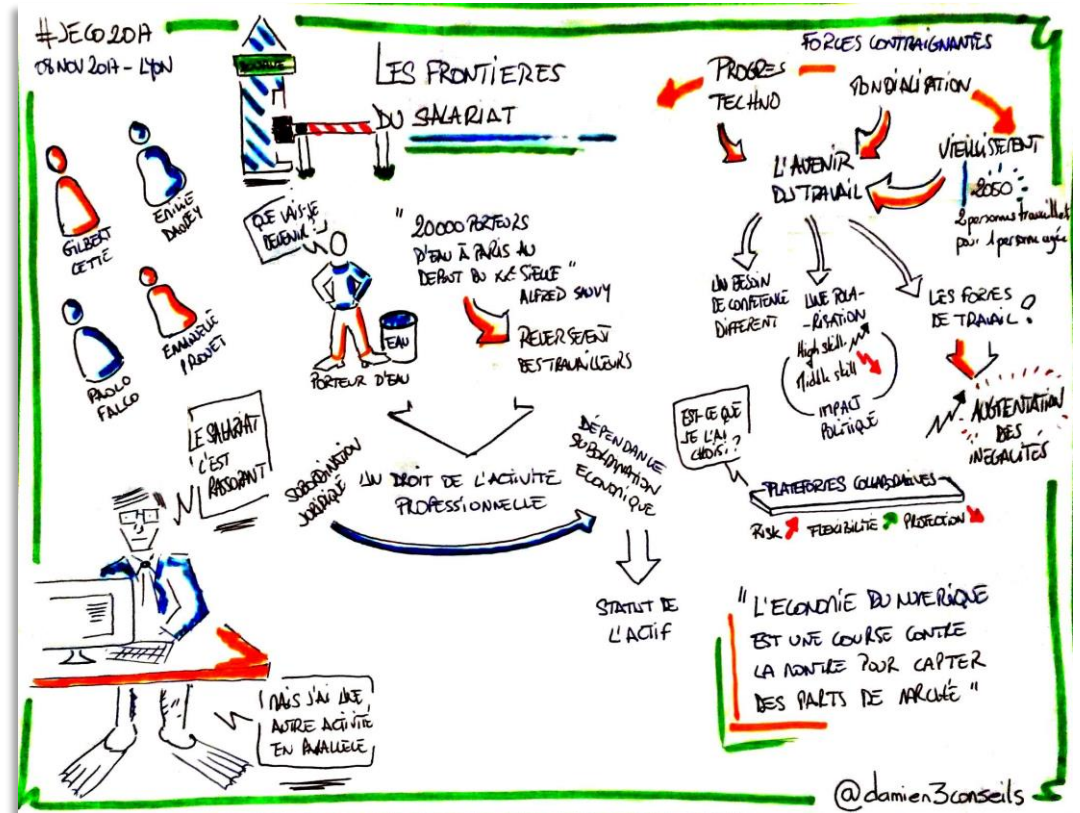 #JECO2017
08 NOV 2017 - LYON
LES FRONTIERES
DU SALARIAT
GILBERT
CETTE
EMILIE
PAOLO
FALCO
EMMANUELLE
PROUET
QUE VAIS-JE
DEVENIR !
PORTEUR D'EAU
EAU
" 20000 PORTEURS
D'EAU À PARIS AU
DEBUT DU XXE SIECLE "
ALFRED SAUVY
DES TRAVAILLEURS
LE SALARIAT
C'EST
RASSURANT
SUBORDINATION
JURIDIQUE
UN DROIT DE L'ACTIVITE
PROFESSIONNELLE
DÉPENDANCE
SUBORDINATION
ECONOMIQUE
STATUT DE
L'ACTIF
MAIS J'AI UNE
AUTRE ACTIVITÉ
EN PARALLELE
FORCES CONTRAIGNANTES
PROGRES
TECHNO
MONDIALISATION
VIEILLISSEMENT
2050
2 personnes travaillent
pour 1 personne agée
L'AVENIR
DU TRAVAIL
UN BESOIN
DE COMPETENCE
DIFFERENT
UNE POLA-
-RISATION
High skill
Middle skill
IMPACT
POLITIQUE
LES FORMES
DE TRAVAIL ?
AUGMENTATION
DES
INEGALITES
EST-CE QUE
JE L'AI
CHOISI ?
PLATEFORMES COLLABORATIVES
RISK FLEXIBILITÉ PROTECTION
" L'ECONOMIE DU NUMERIQUE
EST UNE COURSE CONTRE
LA MONTRE POUR CAPTER
DES PARTS DE MARCHÉ "
@damien3conseils